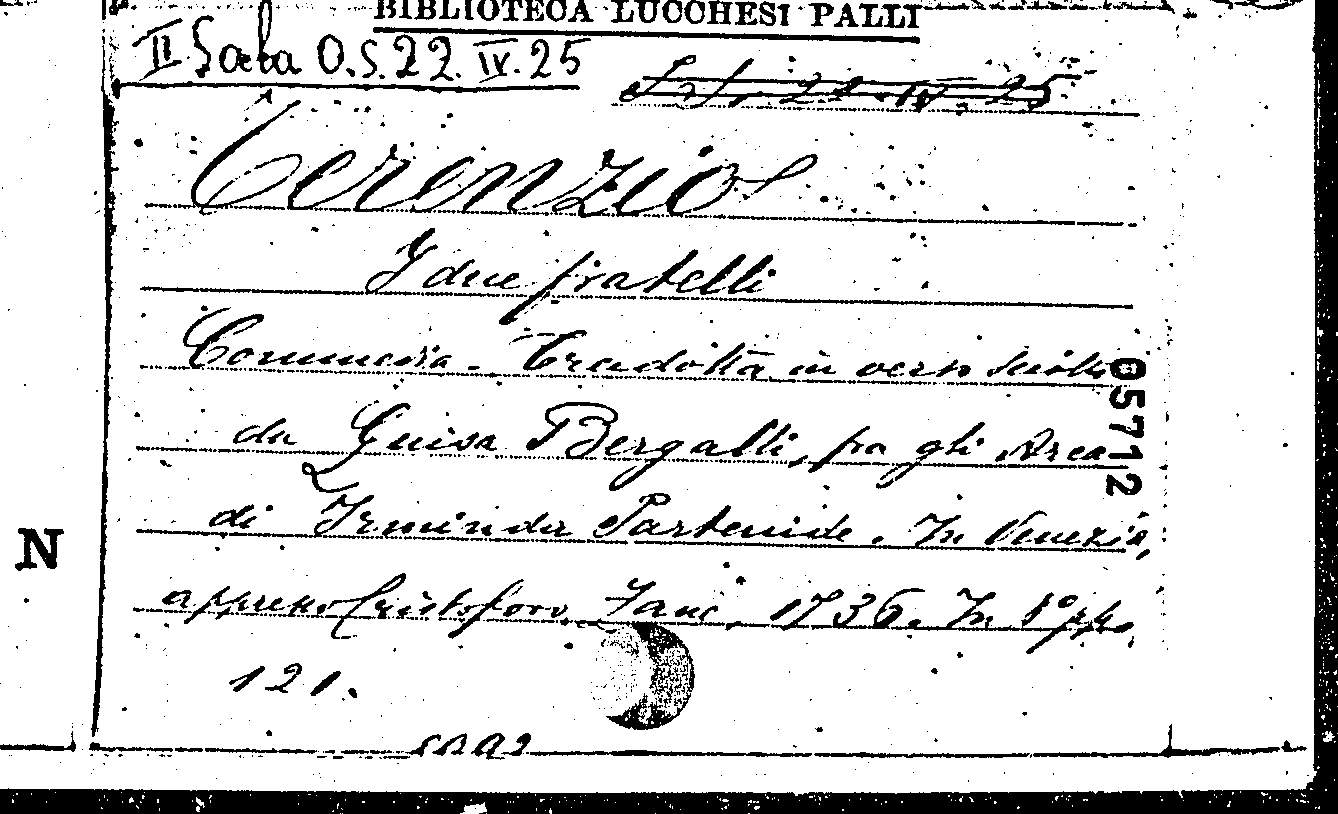 BIBLIOTECA LUCCHESI PALLI
II Sala O.S. 22. IV. 25
22. IV. 25
Terenzio
I due fratelli
Commedia. Tradotta in verso sciolto
da Luisa Bergalli, fra gli Arca
di Irminda Partenide. In Venezia,
appresso Cristoforo Zane, 1736. In 8° pp.
121.
05712
N